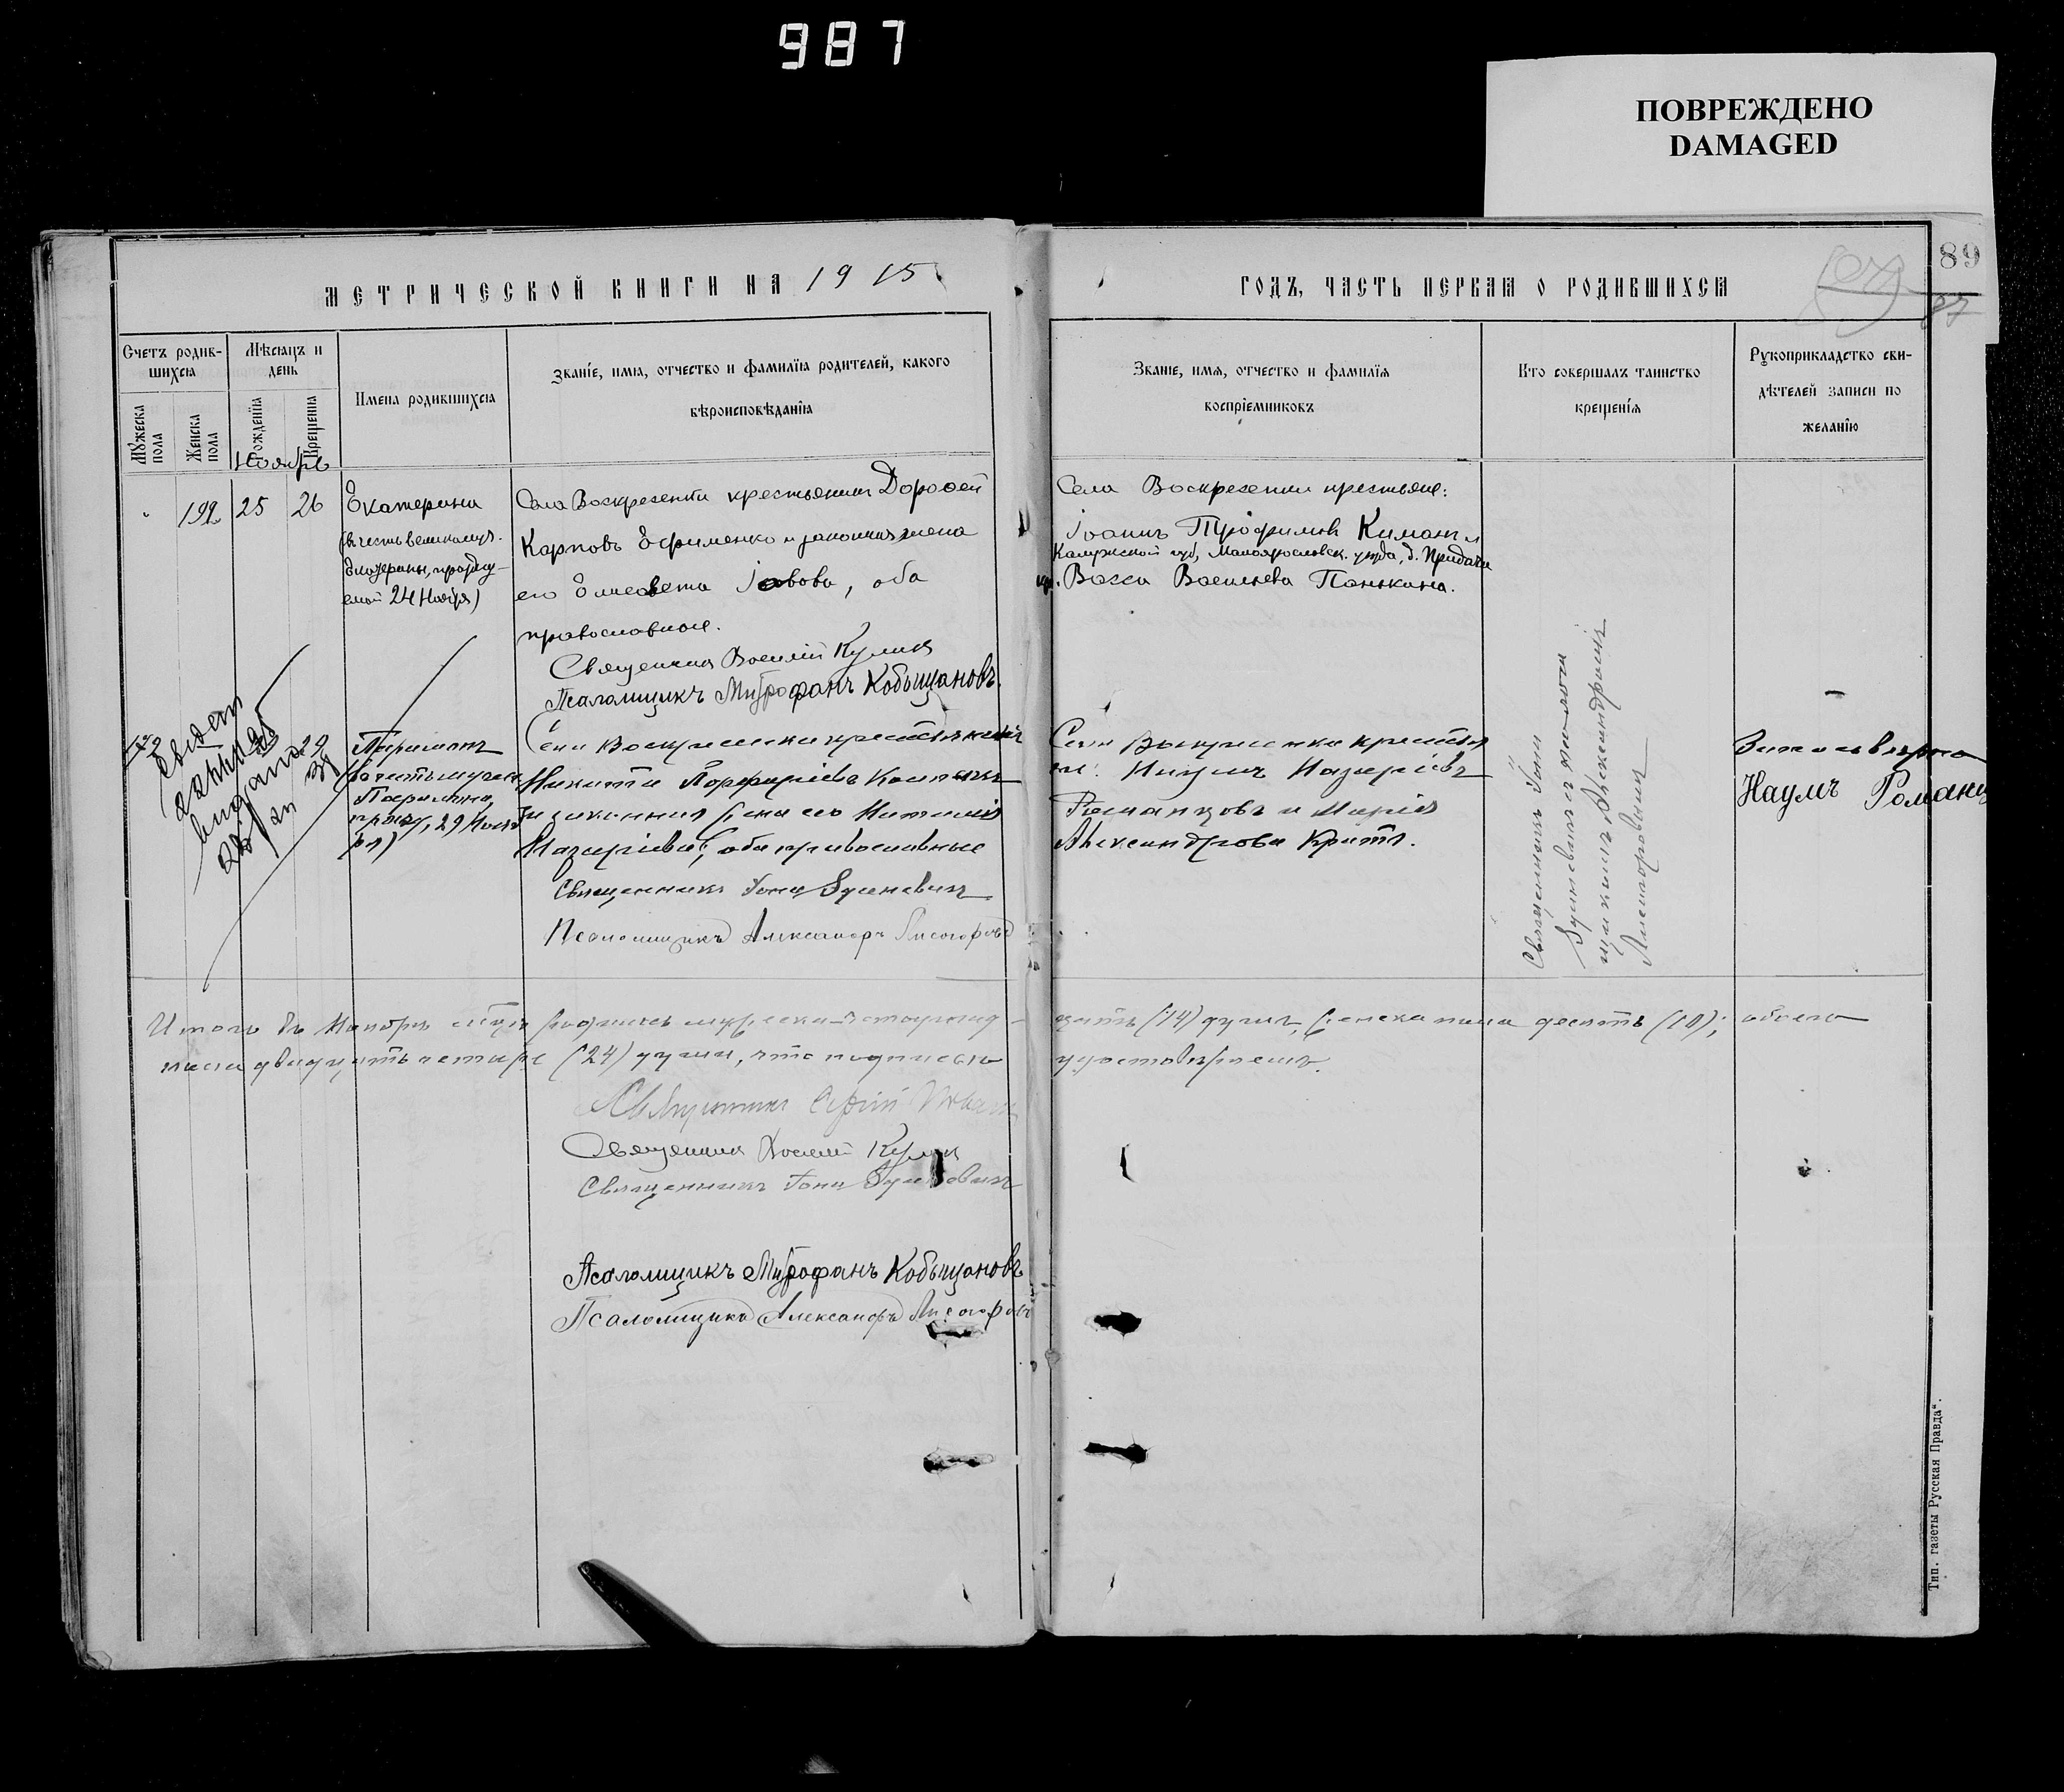 987
ПОВРЕЖДЕНО
DAMAGED
89
87
МЕТРИЧЕСКОЙ КНИГИ НА 1915
ГОДЪ, ЧАСТЬ ПЕРВАЯ О РОДИВШИХСЯ
Счетъ родив-
шихся
Мѣсяцъ и
день
Мужеска
пола
Женска
пола
Рожденія
Крещенія
Имена родившихся
Званіе, имя, отчество и фамилія родителей, какого
вѣроисповѣданія
Званіе, имя, отчество и фамилія
воспріемниковъ
Кто совершалъ таинство
крещенія
Рукоприкладство сви-
дѣтелей записи по
желанію
Ноябрь
192 25 26
Екатерина
въ честь великомуч.
Екатерины, праздну-
емой 24 Ноября)
Села Воскресенки крестьянинъ Дорофей
Карповъ Ефименко и законная жена
его Елисавета Іовова, оба
православные.
Священникъ Василій Куликъ
Псаломщикъ Митрофанъ Кобыщановъ.
Села Воскресенки крестьяне:
Іоаннъ Трофимовъ Киманъ и
Калужской губ, Малоярославск. уѣзда, д.
Васса Васильева Панькина.
29
Парамонъ
въ честь мученика
Парамона,
празд. 29 Нояб-
ря)
Села Воскресенки крестьянинъ
Никита Порфиріевъ
и законная жена его Наталія
Назаріева, оба православные
Священникъ Іона
Псаломщикъ Александръ Лисогоровъ
Села Воскресенки крестья-
не: Наумъ Назаріевъ
Романцовъ и Марія
Александрова
Священникъ Іона
съ псалом-
щикомъ Александромъ
Лисогоровымъ
Записи вѣрно
Наумъ Романц
Итого въ Ноябрѣ мѣсяцѣ родилось мужеска четырнад-
цать (14) душъ, женска пола десять (10); обоего
пола двадцать четыре (24) души, что подписью
удостовѣряемъ.
Священникъ
Священникъ Василій Куликъ
Священникъ Іона
Псаломщикъ Митрофанъ Кобыщановъ
Псаломщикъ Александръ Лисогоровъ
Тип. газеты Русская Правда".